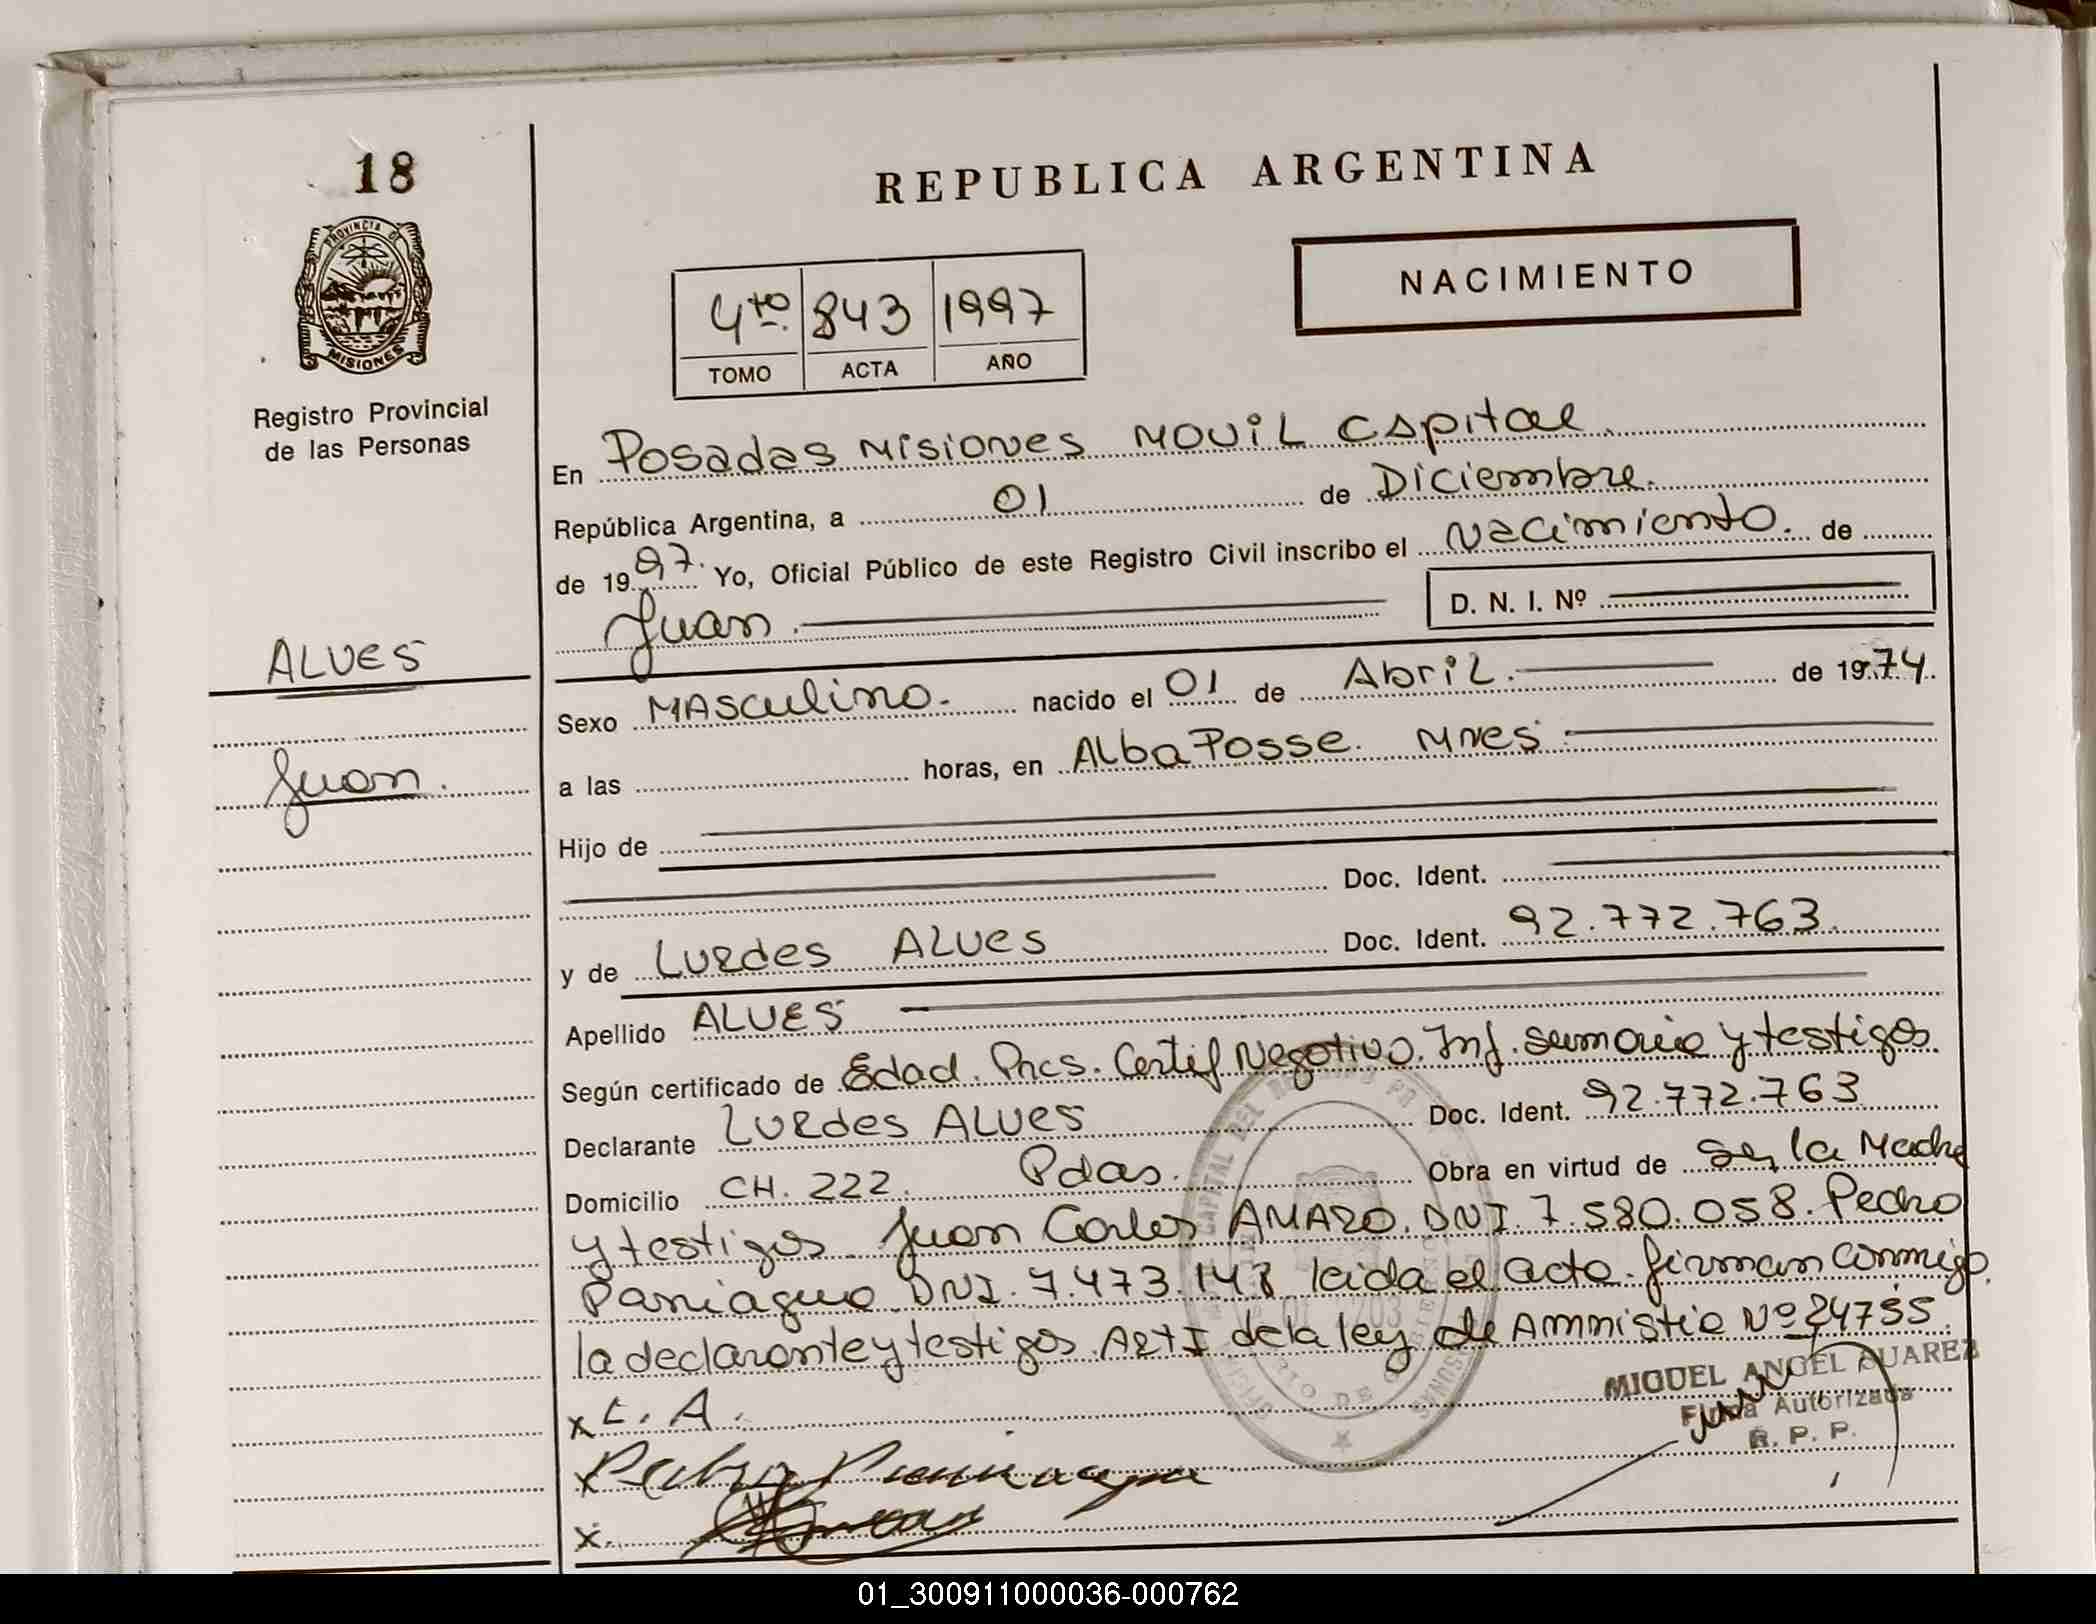 18
REPUBLICA ARGENTINA
PROVINCIA DE
MISIONES
NACIMIENTO
4to. 843 1997
TOMO ACTA AÑO
Registro Provincial
de las Personas
En Posadas Misiones Movil Capital.
República Argentina, a 01 de Diciembre.
de 1997. Yo, Oficial Público de este Registro Civil inscribo el Nacimiento. de
Juan. D. N. I. Nº
ALVES
Juan.
Sexo Masculino. nacido el 01 de Abril. de 1974.
a las horas, en Alba Posse. Mnes.
Hijo de
Doc. Ident.
y de Lurdes Alves Doc. Ident. 92.772.763.
Apellido ALVES
Según certificado de Edad. Pncs. Certif Negativo. Inf. Sumaria y testigos.
Declarante Lurdes Alves Doc. Ident. 92.772.763
Domicilio CH. 222. Pdas. Obra en virtud de Ser la Madre
y testigos Juan Carlos AMARO. DNI. 7.580.058. Pedro
Paniagua DNI. 7.473.148 leida el acta. firman conmigo.
la declarante y testigos. Art I de la ley de Amnistia Nº 24755.
x L. A.
MIGUEL ANGEL SUAREZ
Firma Autorizada
R. P. P.
x Pedro Paniagua
x.
01_300911000036-000762